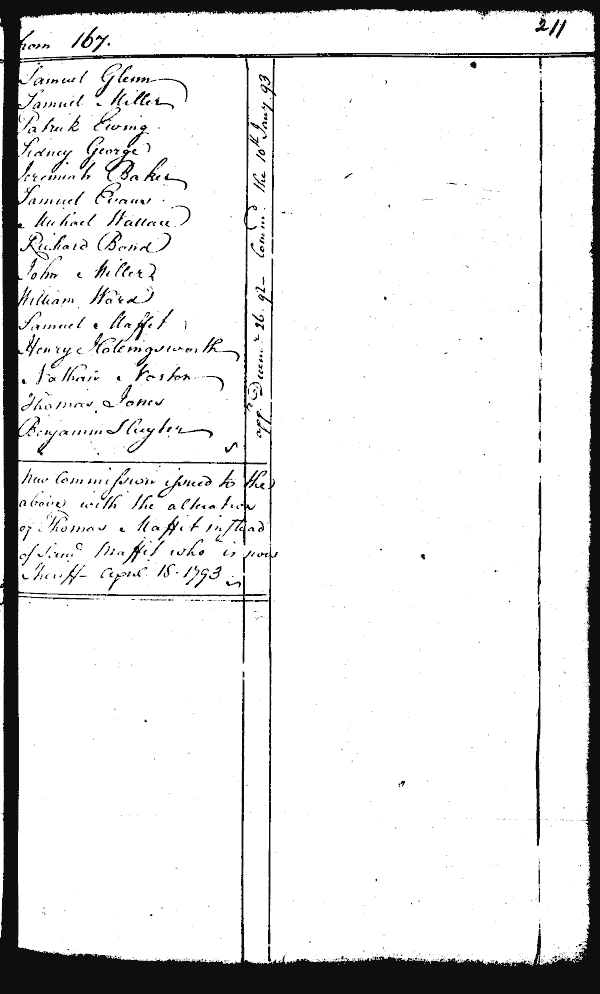 from 167.
211
Samuel Glenn
Samuel Miller
Patrick Ewing
Sidney George
Jeremiah Baker
Samuel Evans
Michael Wallace
Richard Bond
John Miller
William Ward
Samuel Maffit
Henry Holingsworth
Nathan Norton
Thomas Jones
Benjamin Sluyter
appd Decemr 26. 92 - Commd the 10th Jany 93
new Commission issued to the
above with the alteration
of Thomas Maffit instead
of Saml Maffit who is now
Sheriff - April 18. 1793